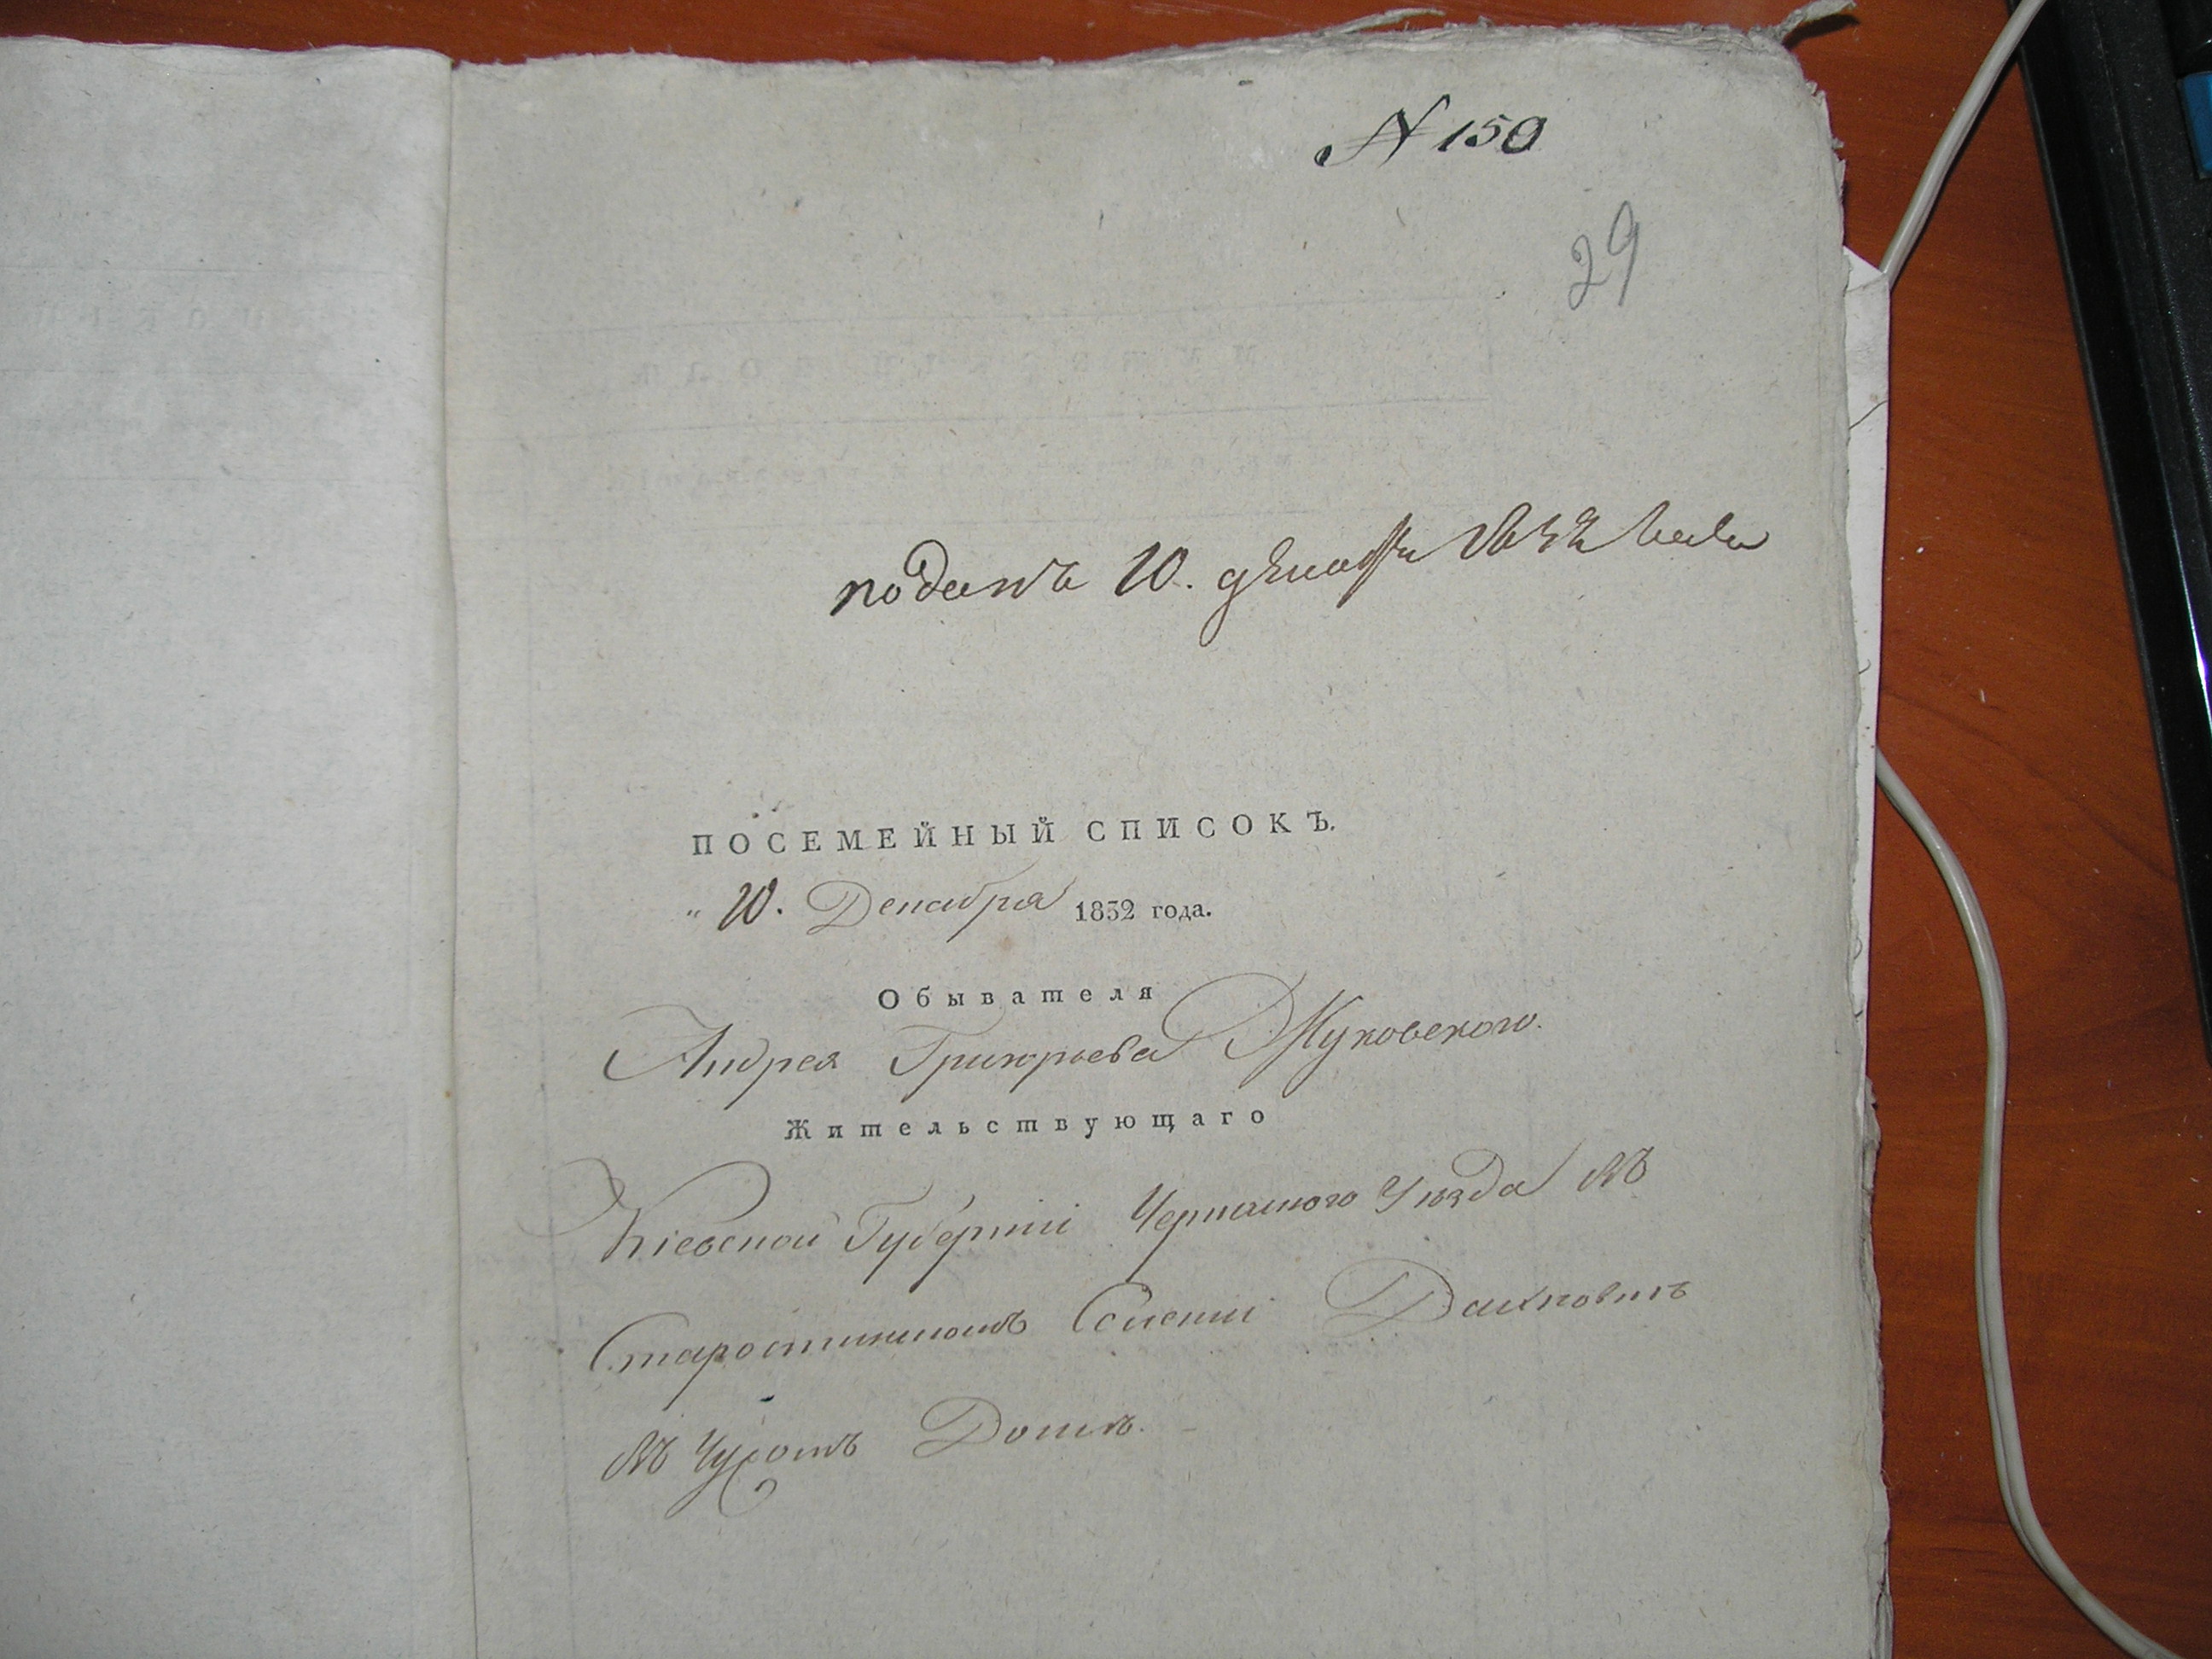 N 150
29
поданъ 10. декабря 1832 года
ПОСЕМЕЙНЫЙ СПИСОКЪ.
„ 10. Декабря 1832 года.
Обывателя
Андрея Григорьева Жуковского.
Жительствующаго
Кіевской Губерніи Черкаского Уѣзда въ
Старостинскомъ Селеніи
въ Чужомъ Домѣ.